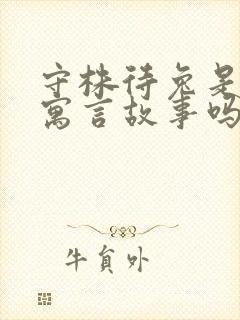 守株待兔是
寓言故事吗
牛貟外